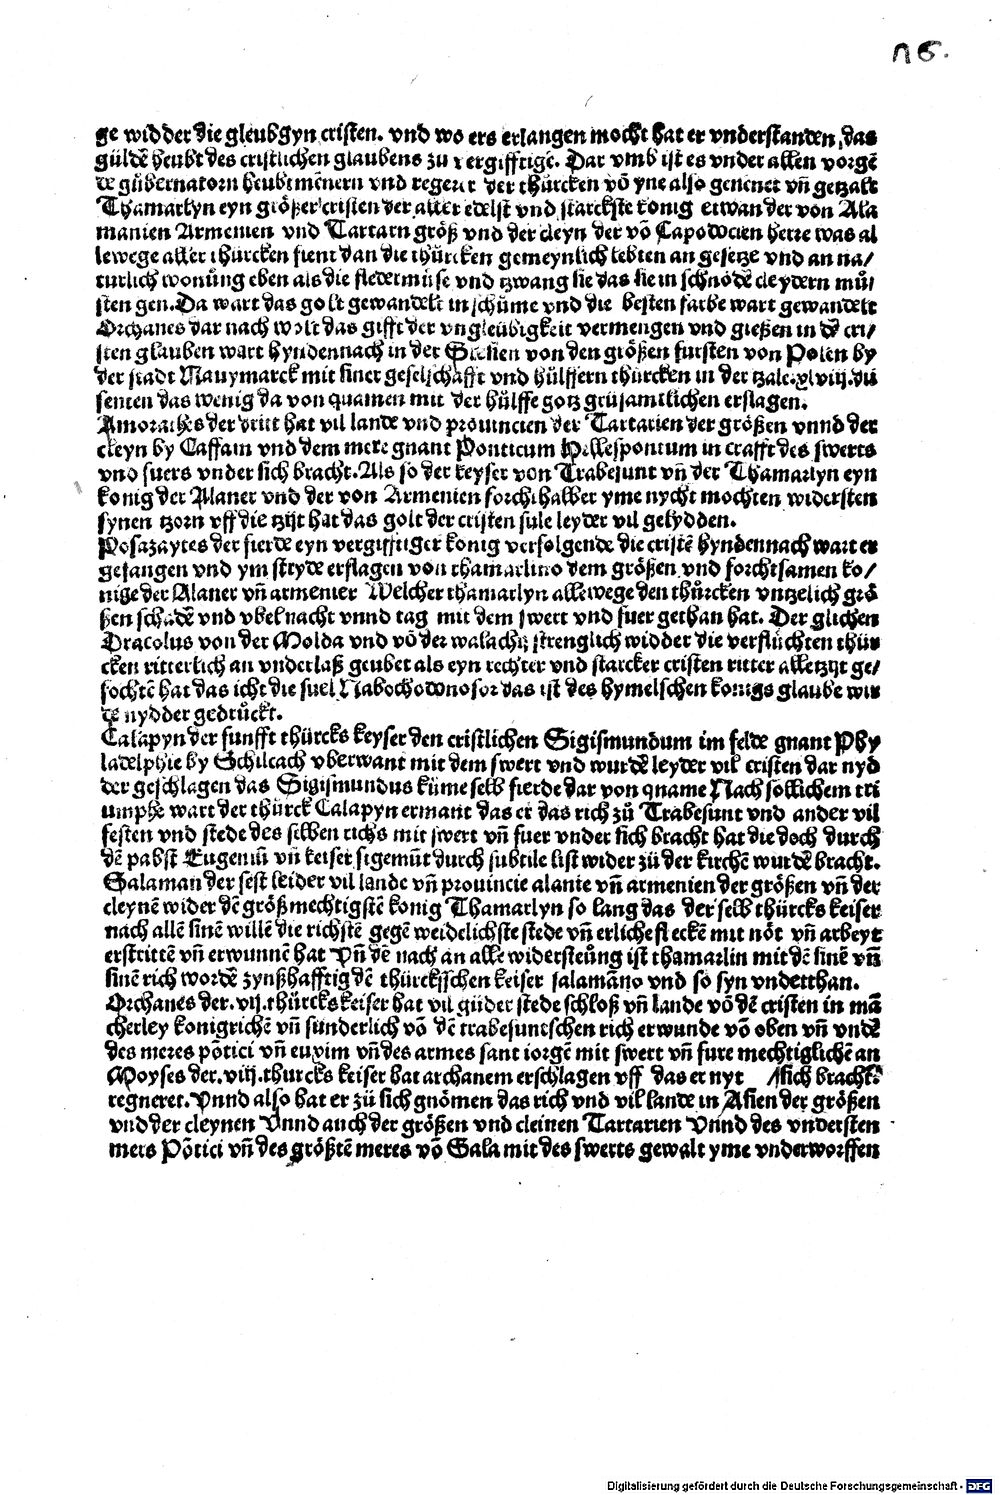 16.
ge widder die gleubgyn cristen. vnd wo ers erlangen mocht hat er vnderstanden, das
güldē heubt des cristlichen glaubens zu vergifftigē. Dar vmb ist es vnder allen vorgē
dē gübernatorn heubtmēnern vnd regerer der thürcken vō yne also genenet vn̄ getzalt
Thamarlyn eyn größer cristen der aller edelst vnd starckste konig etwan der von Ala
manien Armenien vnd Tartarn größ vnd der cleyn der vō Capodocien herre was al
lewege aller thürcken fient dan die thürcken gemeynlich lebten an gesetze vnd an na/
turlich wonüng eben als die fledermüse vnd tzwang sie das sie in schnödē cleydern mü/
sten gen. Da wart das golt gewandelt in schüme vnd die besten farbe wart gewandelt
Orchanes dar nach wolt das gifft der vngleubigkeit vermengen vnd gießen in dē cri/
sten glauben wart hyndennach in der von den größen fursten von Polen by
der stadt Mauymarck mit siner geselschafft vnd hülffern thürcken in der tzale. xlviij. dü
senten das wenig da von quamen mit der hülffe gotz grüsamtlichen erslagen.
Amorathes der dritt hat vil lande vnd prouincien der Tartarien der größen vnnd der
cleyn by Caffam vnd dem mere gnant Ponticum Hellespontum in crafft des swerts
vnd fuers vnder sich bracht. Als so der keyser von Trabesunt vn̄ der Thamarlyn eyn
konig der Alaner vnd der von Armenien forchthalber yme nycht mochten widersten
synen tzorn vff die tzijt hat das golt der cristen sule leyder vil gelydden.
Posazaytes der fierde eyn vergifftiger konig verfolgende die cristē hyndennach wart er
gefangen vnd ym stryde erslagen von thamarlino dem größen vnd forchtsamen ko/
nige der Alaner vn̄ armenier Welcher thamarlyn allewege den thürcken vntzelich grö
ßen schadē vnd vbel nacht vnnd tag mit dem swert vnd fuer gethan hat. Der glichen
Dracolus von der Molda vnd vō der walachij strenglich widder die verflüchten thür
cken ritterlich an vnderlaß geubet als eyn rechter vnd starcker cristen ritter alletzyt ge/
fochtē hat das icht die suel Nabochodonosor das ist des hymelschen konigs glaube wur
dē nydder gedrückt.
Calapyn der funfft thürcks keyser den cristlichen Sigismundum im felde gnant Phy
ladelphie by Schiltach vberwant mit dem swert vnd wurdē leyder vil cristen dar nyd
der geschlagen das Sigismundus küme selb fierde dar von qname Nach sollichem tri
umphe wart der thürck Calapyn ermant das er das rich zü Trabesunt vnd ander vil
festen vnd stede des selben richs mit swert vn̄ fuer vnder sich bracht hat die doch durch
dē pabst Eugeniū vn̄ keiser sigemūt durch subtile list wider zü der kirchē wurdē bracht.
Salaman der sest leider vil lande vn̄ prouincie alanie vn̄ armenien der größen vn̄ der
cleynē wider dē größmechtigstē konig Thamarlyn so lang das der selb thürcks keiser
nach allē sinē willē die richstē gegē weidelichste stede vn̄ erliche fleckē mit nöt vn̄ arbeyt
erstrittē vn̄ erwunnē hat Vn̄ dē nach an alle widersteüng ist thamarlin mit dē sinē vn̄
sinē rich wordē zynßhafftig dē thürckisschen keiser salamāno vnd so syn vnderthan.
Orchanes der. vij. thürcks keiser hat vil güder stede schloß vn̄ lande vō dē cristen in mā
cherley konigrichē vn̄ sunderlich vō dē trabesuntschen rich erwunde vō oben vn̄ vndē
des meres pōtici vn̄ euxim vn̄ des armes sant iorgē mit swert vn̄ fure mechtiglichē an
Moyses der. viij. thurcks keiser hat archanem erschlagen vff das er nyt sich bracht.
regneret. Vnnd also hat er zü sich gnōmen das rich vnd vil lande in Asien der größen
vnd der cleynen Vnnd auch der größen vnd cleinen Tartarien Vnnd des vndersten
mers Pōtici vn̄ des größtē meres vō Sala mit des swerts gewalt yme vnderworffen
Digitalisierung gefördert durch die Deutsche Forschungsgemeinschaft - DFG